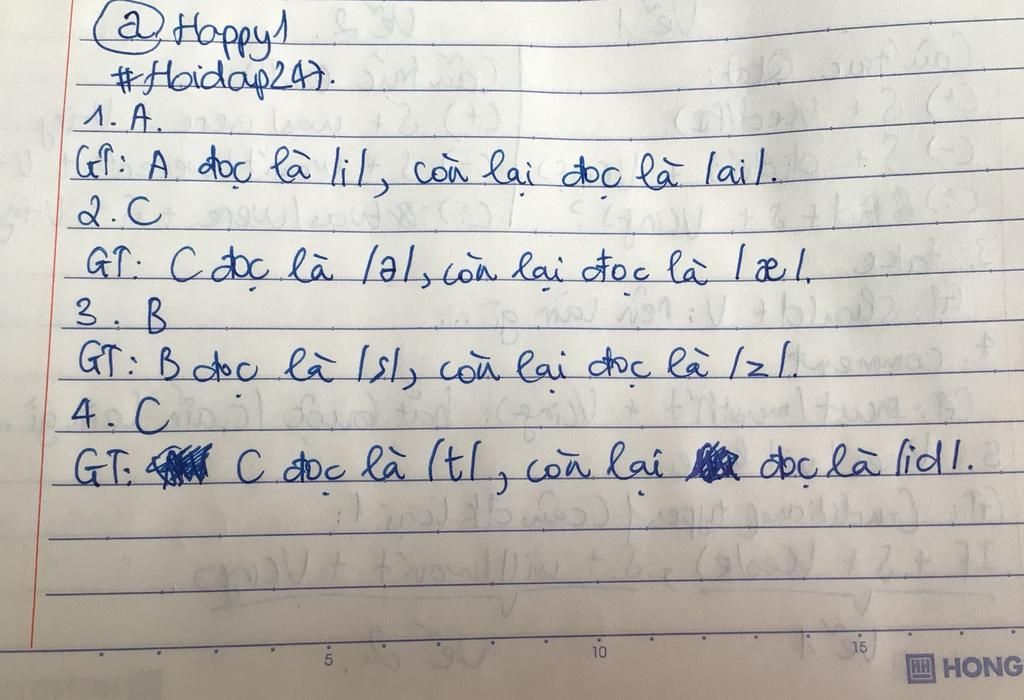 @ Happy1
#Hoidap247.
1. A.
GT: A đọc là /i/, còn lại đọc là /ai/.
2. C
GT: C đọc là /ə/, còn lại đọc là /æ/.
3. B
GT: B đọc là /s/, còn lại đọc là /z/.
4. C
GT: C đọc là /t/, còn lại đọc là /id/.
5 10 15
HONG